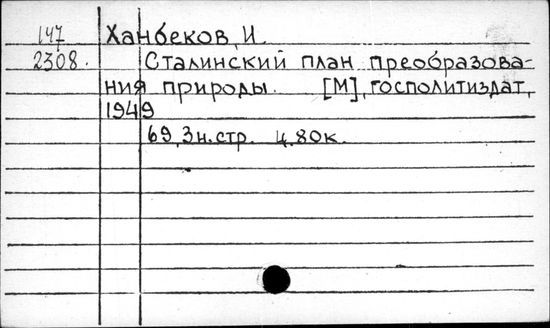 147 Ханбеков, И.
2308. Сталинский план преобразова-
ния природы. [М], госполитиздат,
1949
69, 3 н. стр. ц. 80 к.